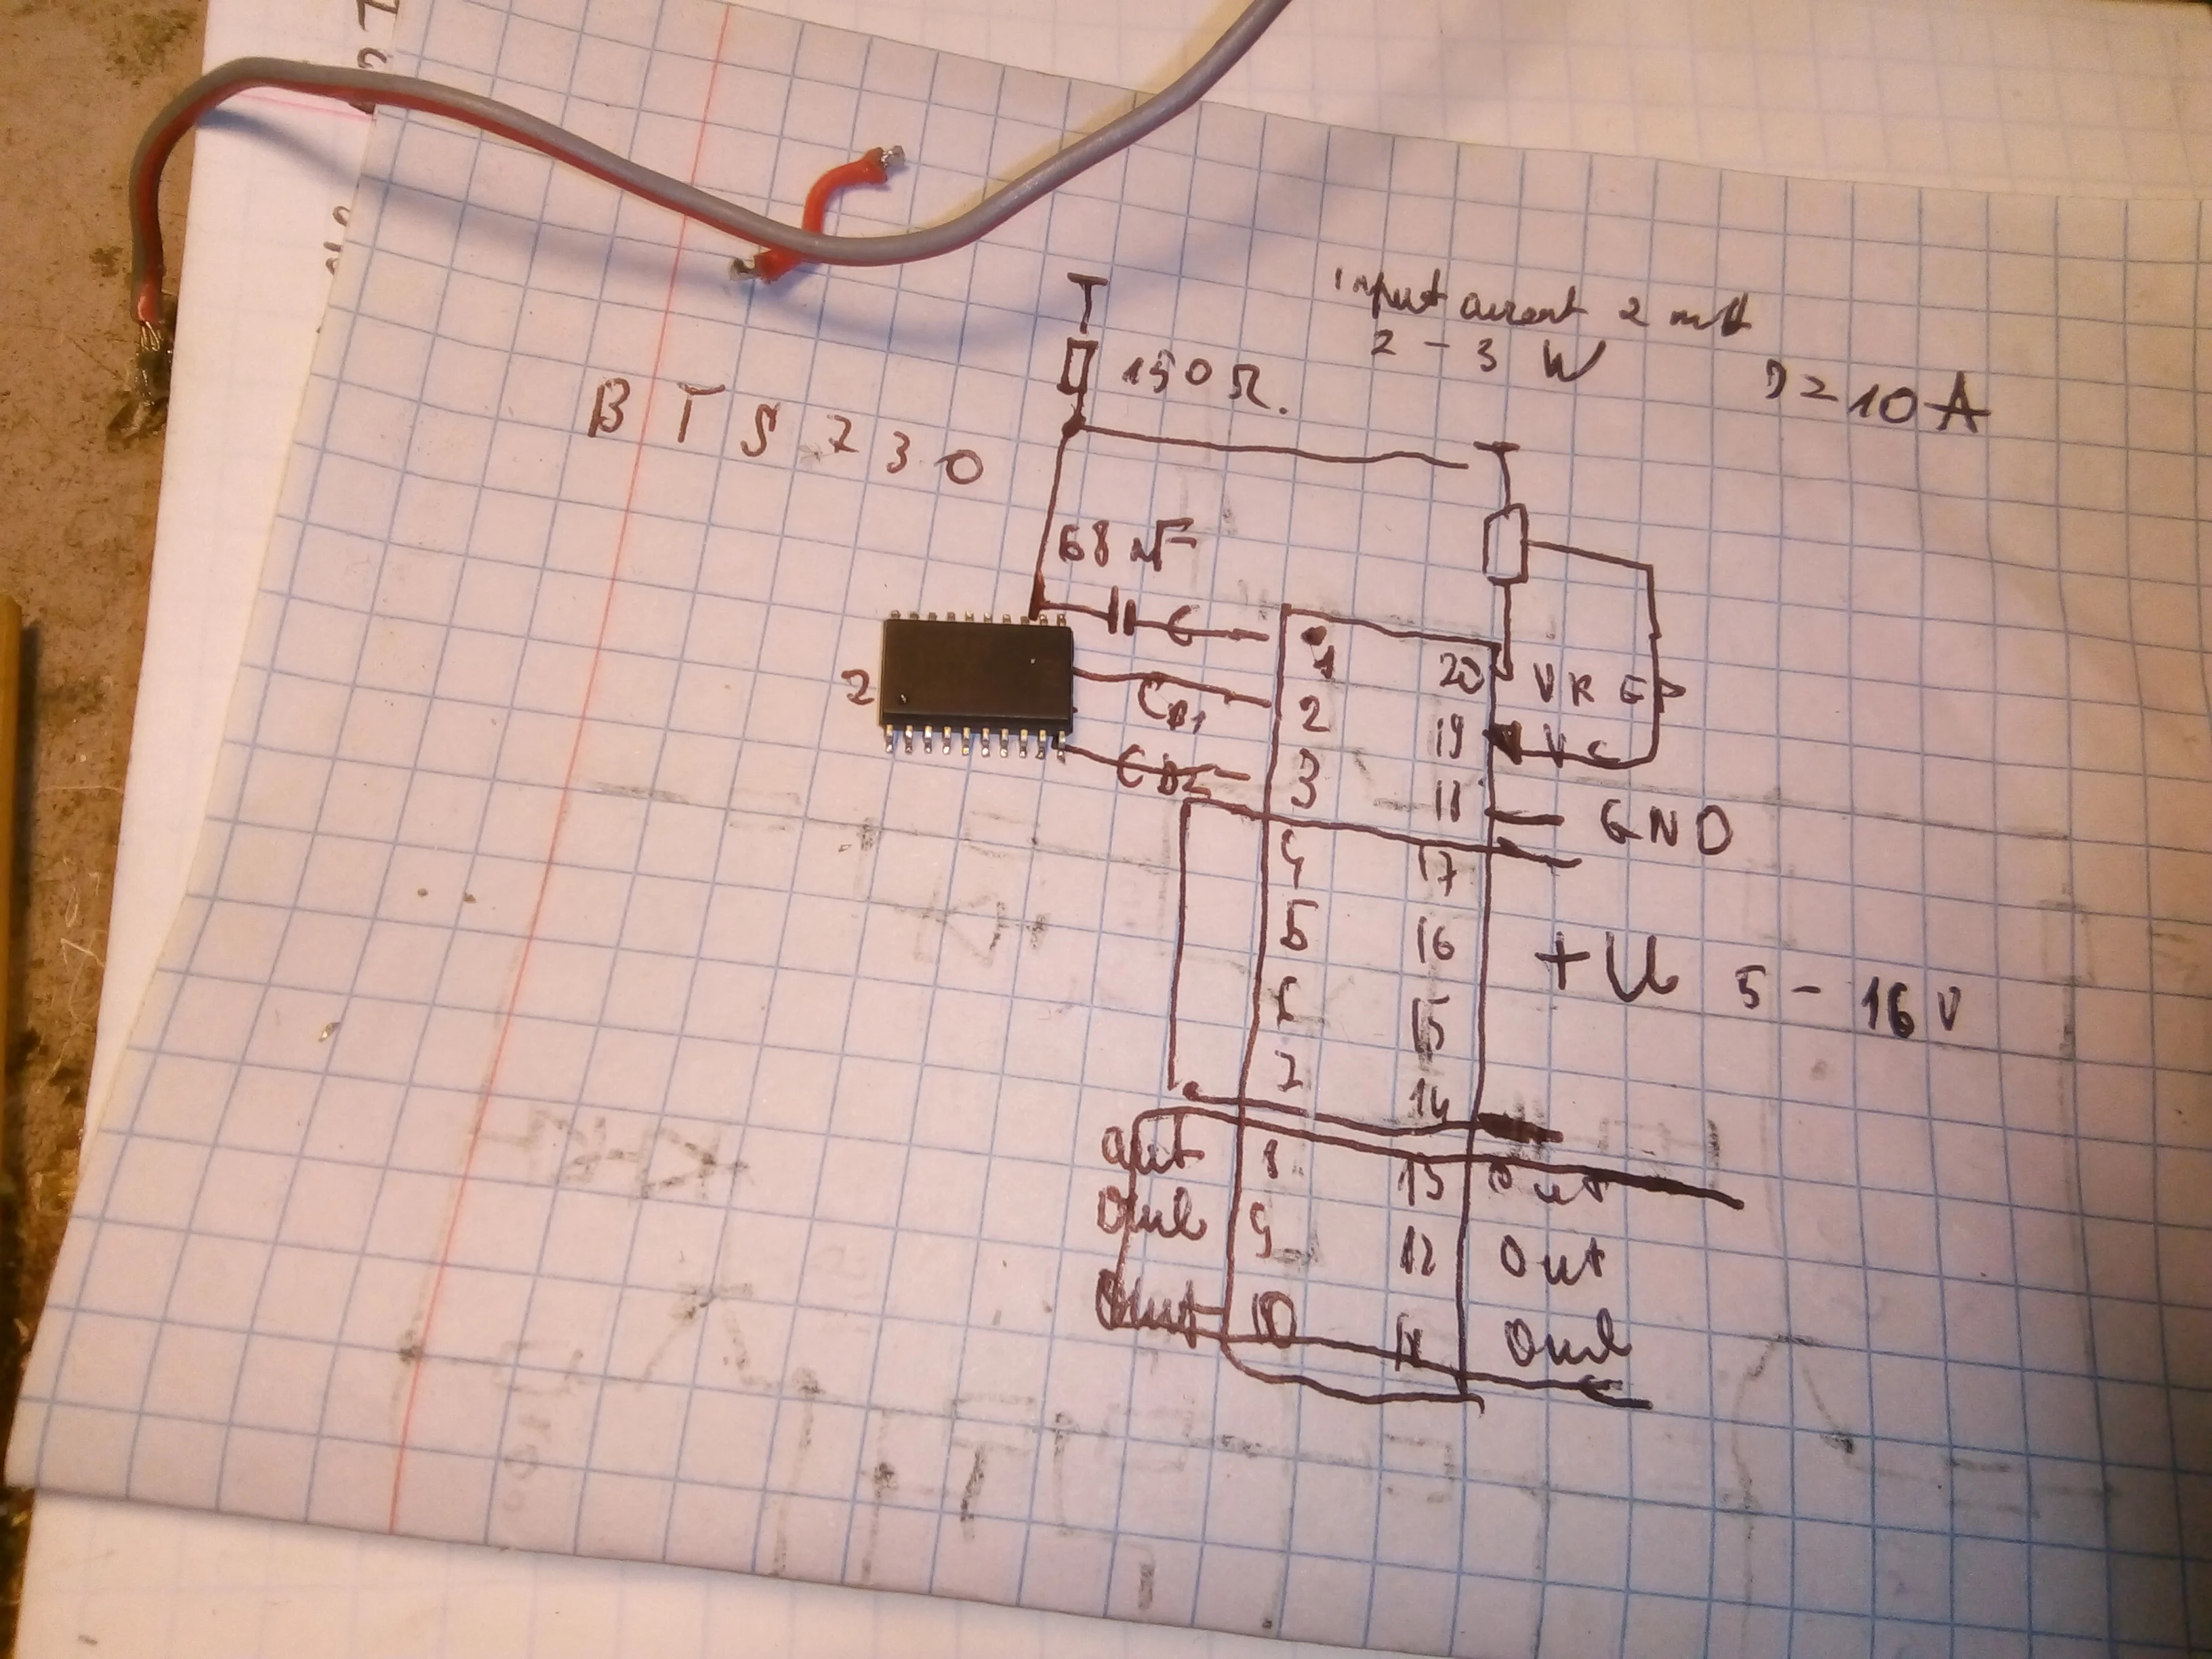 input current 2 mA
2 - 3 W
150 Ω.
10 A
BTS 730
68 nF
C
1
20 VRE
2
CB1 2
19 VC
CB2 3
18 GND
4 17
5 16
+U 5 - 16 V
6 15
7 14
out 8 13 out
Out 9 12 Out
Out 10 11 Out